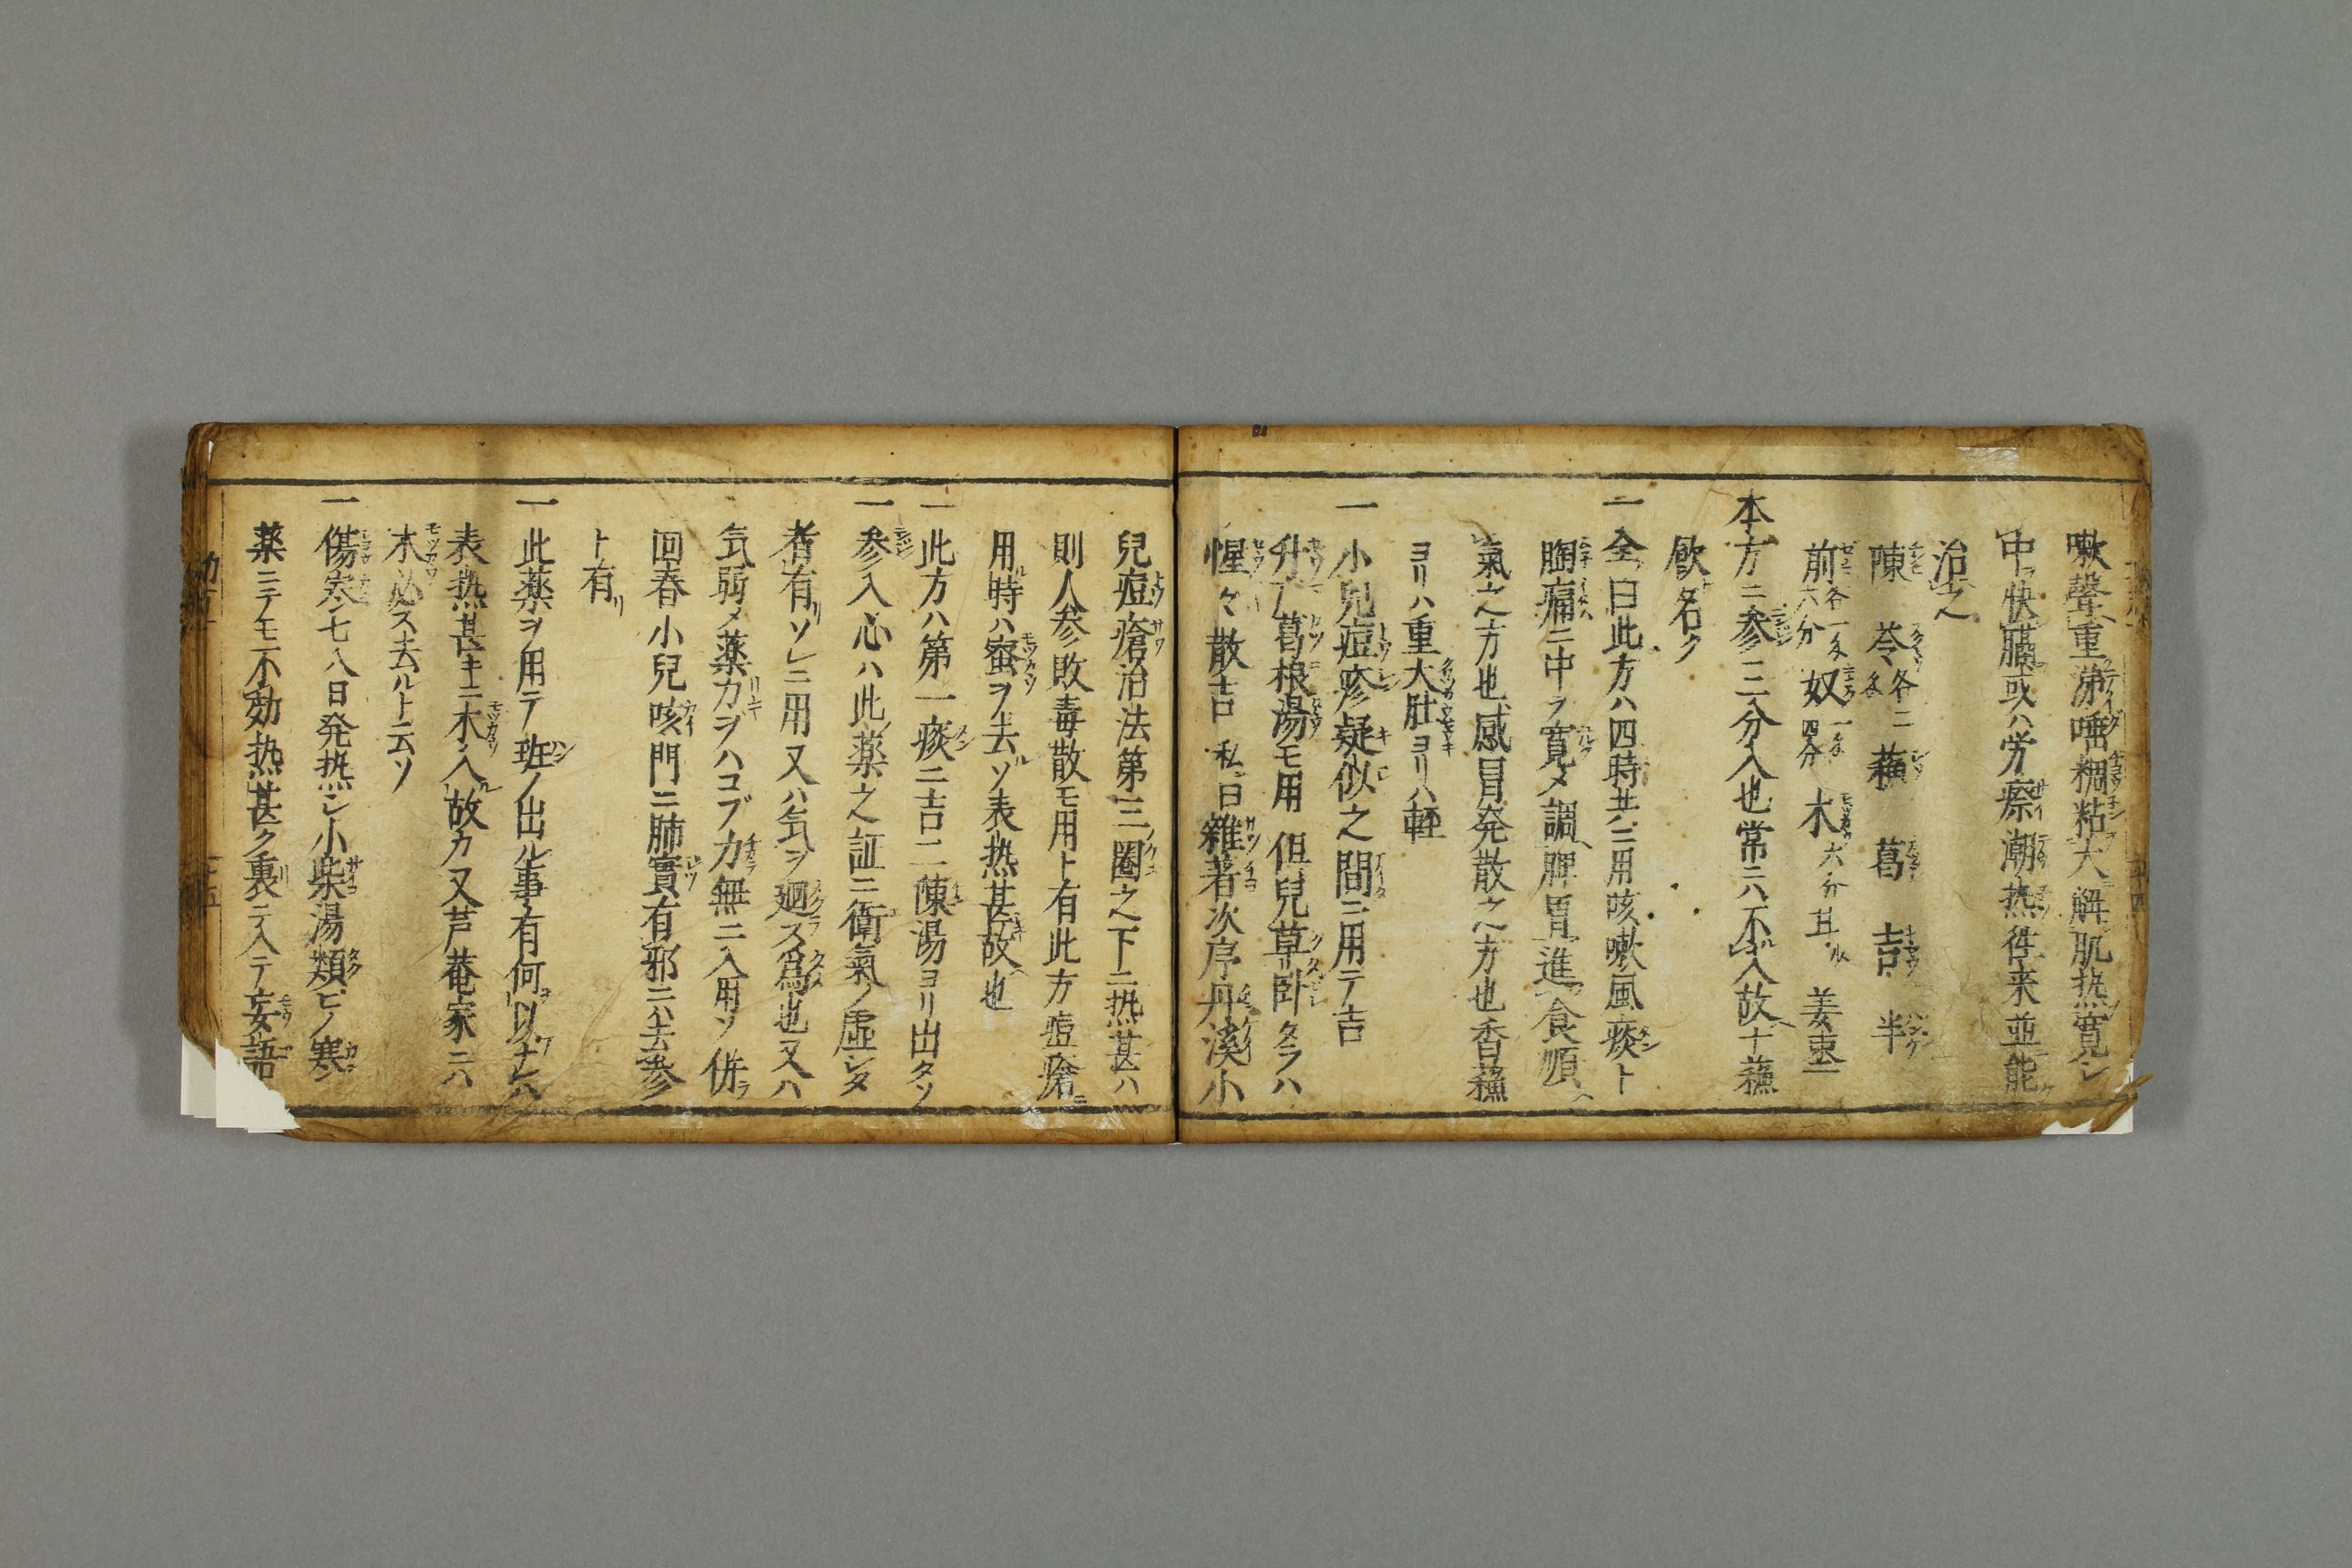 嗽聲重涕唾稠粘大解肌热寛シ
中快膈或ハ労瘵潮热徃来並能
治之
陳 苓各二 蘓 葛 吉 半
前各一 六分 奴 四分 木六分 姜棗
本方ニ参三分入也常ニハ不入故十蘓
飲名ク
一 全曰此方ハ四時共ニ用咳嗽風痰ト
胸痛ニ中ヲ寛メ調脾胃進食順
氣之方也感冒発散之方也香蘓
ヨリハ重大肚ヨリハ軽
一 小兒痘疹疑似之間ニ用テ吉
升广葛根湯モ用 但兒草臥タラハ
惺々散吉 私曰雜著次序丹溪小
兒痘瘡治法第三圈之下ニ热甚ハ
則人参敗毒散モ用ト有此方痘瘡ニ
用時ハ蜜ヲ去ソ表热甚故也
一 此方ハ第一痰ニ吉二陳湯ヨリ出タソ
一 参入心ハ此薬之証ニ衛氣ノ虚シタ
者有リソレニ用又ハ気ヲ廻ス爲也又ハ
気弱メ薬力ヲハコブ力無ニ入用ソ併
回春小兒咳門ニ肺實有邪ニハ去参
ト有リ
一 此薬ヲ用テ班ノ出ル事有何以ナレハ
表热甚キニ木入故カ又芦菴家ニハ
木必ス去ルト云ソ
一 傷寒七八日発热シ小柴湯類ヒノ寒
薬ニテモ不効热甚ク裏ニ入テ妄語